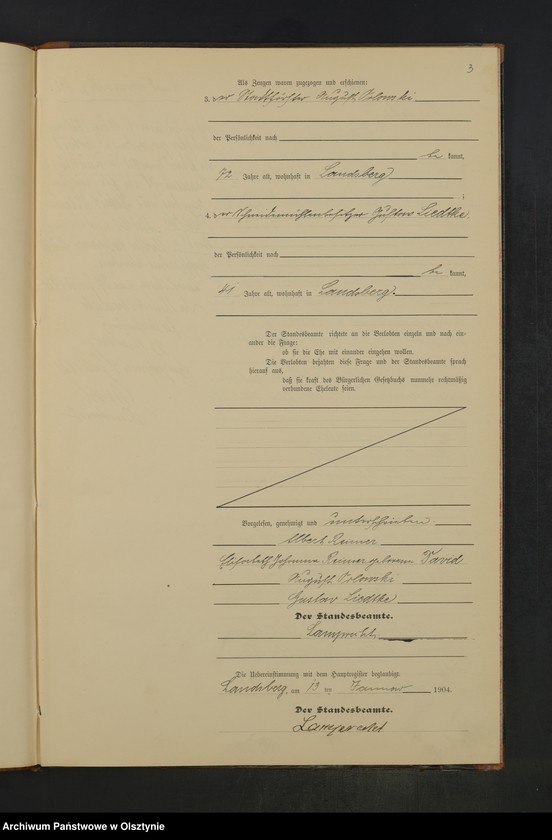 3
Als Zeugen waren zugezogen und erschienen:
3. der Stadtförster August
der Persönlichkeit nach
be kannt,
72 Jahre alt, wohnhaft in Landsberg
;
4. der Schneidemühlenbesitzer Gustav Liedtke
der Persönlichkeit nach
be kannt,
41 Jahre alt, wohnhaft in Landsberg.
Der Standesbeamte richtete an die Verlobten einzeln und nach ein-
ander die Frage:
ob sie die Ehe mit einander eingehen wollen.
Die Verlobten bejahten diese Frage und der Standesbeamte sprach
hierauf aus,
daß sie kraft des Bürgerlichen Gesetzbuchs nunmehr rechtmäßig
verbundene Eheleute seien.
Vorgelesen, genehmigt und unterschrieben
Albert
Elisabeth Johanna geborene David
August
Gustav Liedtke
Der Standesbeamte.
Lamprecht
Die Uebereinstimmung mit dem Hauptregister beglaubigt.
Landsberg, am 13 ten Januar 1904.
Der Standesbeamte.
Lamprecht
Archiwum Państwowe w Olsztynie